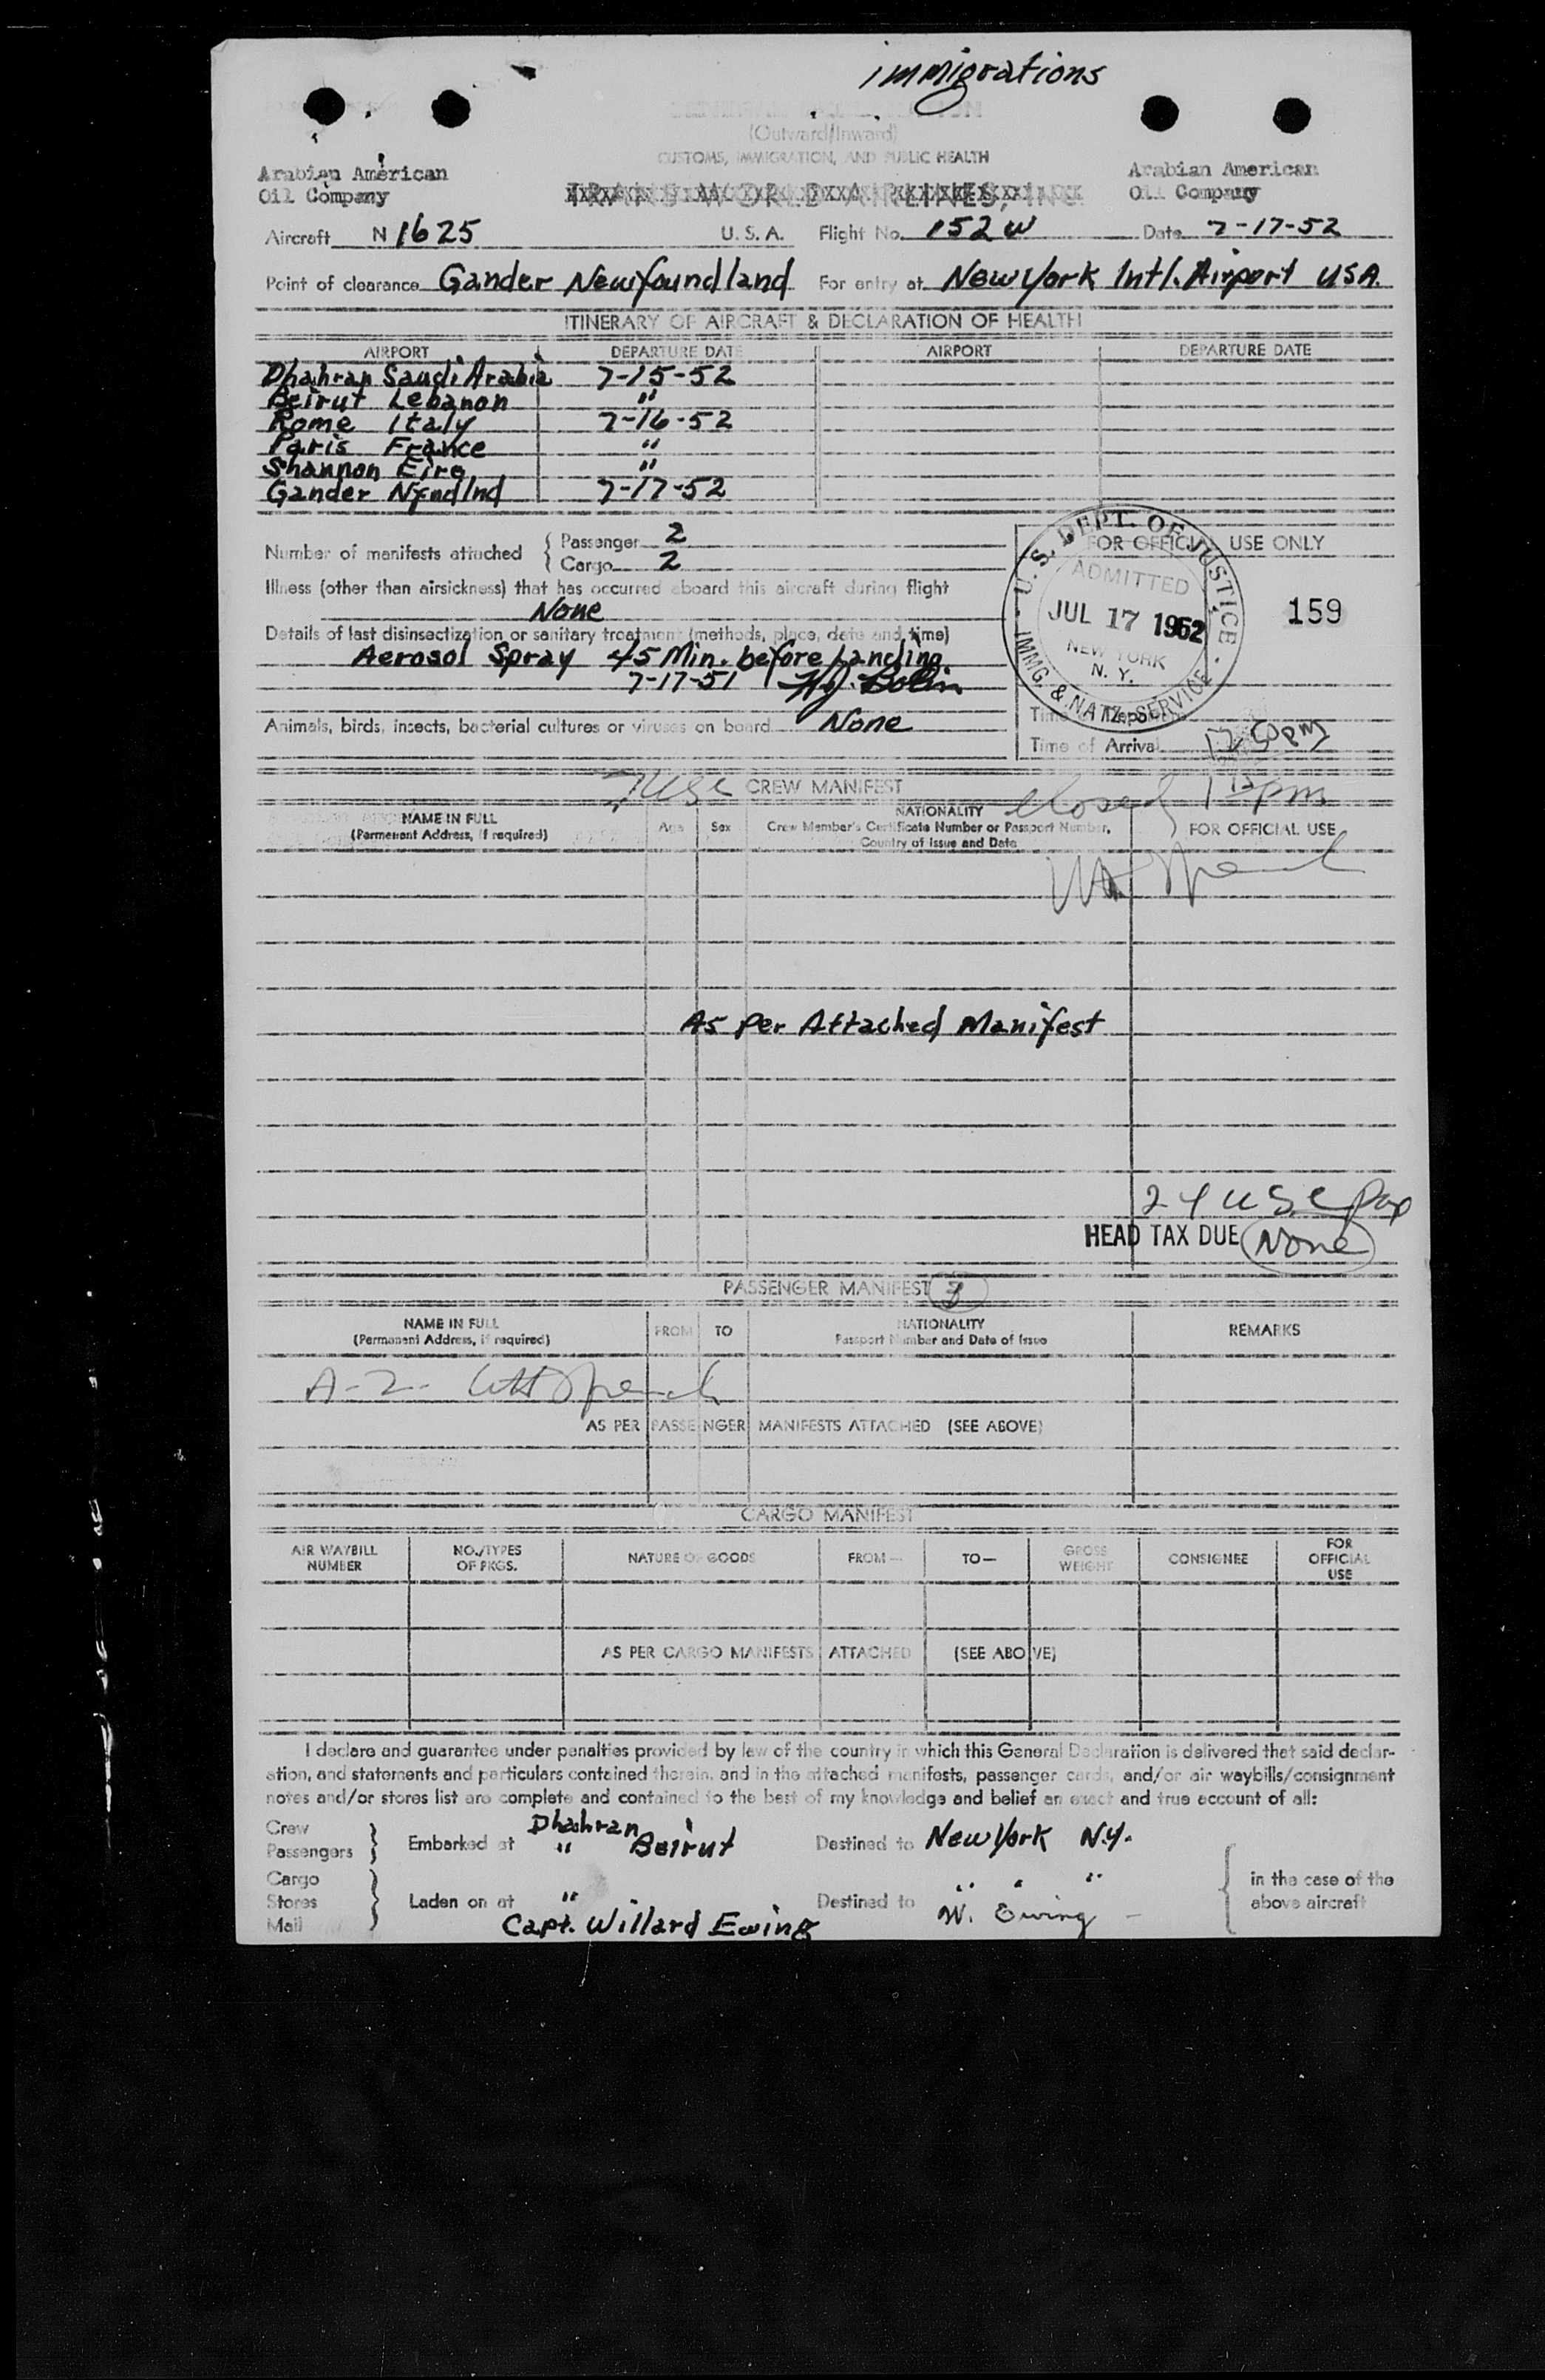 immigrations
(Outward/Inward)
CUSTOMS, IMMIGRATION, AND PUBLIC HEALTH
Arabian American
Oil Company
TRANS WORLD AIRLINES, INC.
Arabian American
Oil Company
Aircraft N 1625 U. S. A. Flight No. 152W Date 7-17-52
Point of clearance Gander Newfoundland For entry at New York Intl. Airport USA.
ITINERARY OF AIRCRAFT & DECLARATION OF HEALTH
AIRPORT DEPARTURE DATE AIRPORT DEPARTURE DATE
Dhahran Saudi Arabia 7-15-52
Beirut Lebanon "
Rome Italy 7-16-52
Paris France "
Shannon Eire "
Gander Nfndlnd 7-17-52
Number of manifests attached { Passenger 2
Cargo 2
FOR OFFICIAL USE ONLY
U. S. DEPT. OF JUSTICE
ADMITTED
JUL 17 1952
NEW YORK
N. Y.
IMMG. & NATZ. SERVICE
159
Illness (other than airsickness) that has occurred aboard this aircraft during flight
None
Details of last disinsectization or sanitary treatment (methods, place, date and time)
Aerosol Spray 45 Min. before Landing.
7-17-51 Bolin
Animals, birds, insects, bacterial cultures or viruses on board None
Time of Arrival 12 50 pm
7 USC CREW MANIFEST closed 1 15 pm
NAME IN FULL
(Permanent Address, if required)
Age Sex
NATIONALITY
Crew Member's Certificate Number or Passport Number,
Country of Issue and Date
FOR OFFICIAL USE
As Per Attached Manifest
24 USC Pax
HEAD TAX DUE None
PASSENGER MANIFEST 3
NAME IN FULL
(Permanent Address, if required)
FROM TO
NATIONALITY
Passport Number and Date of Issue
REMARKS
A-2-
AS PER PASSENGER MANIFESTS ATTACHED (SEE ABOVE)
CARGO MANIFEST
AIR WAYBILL
NUMBER
NO./TYPES
OF PKGS.
NATURE OF GOODS
FROM—
TO—
GROSS
WEIGHT
CONSIGNEE
FOR
OFFICIAL
USE
AS PER CARGO MANIFESTS ATTACHED (SEE ABOVE)
I declare and guarantee under penalties provided by law of the country in which this General Declaration is delivered that said declar-
ation, and statements and particulars contained therein, and in the attached manifests, passenger cards, and/or air waybills/consignment
notes and/or stores list are complete and contained to the best of my knowledge and belief an exact and true account of all:
Crew
Passengers } Embarked at Dhahran
" Beirut Destined to New York N.Y.
Cargo
Stores
Mail } Laden on at " Destined to " " "
{ in the case of the
above aircraft
Capt. Willard Ewing W. Ewing